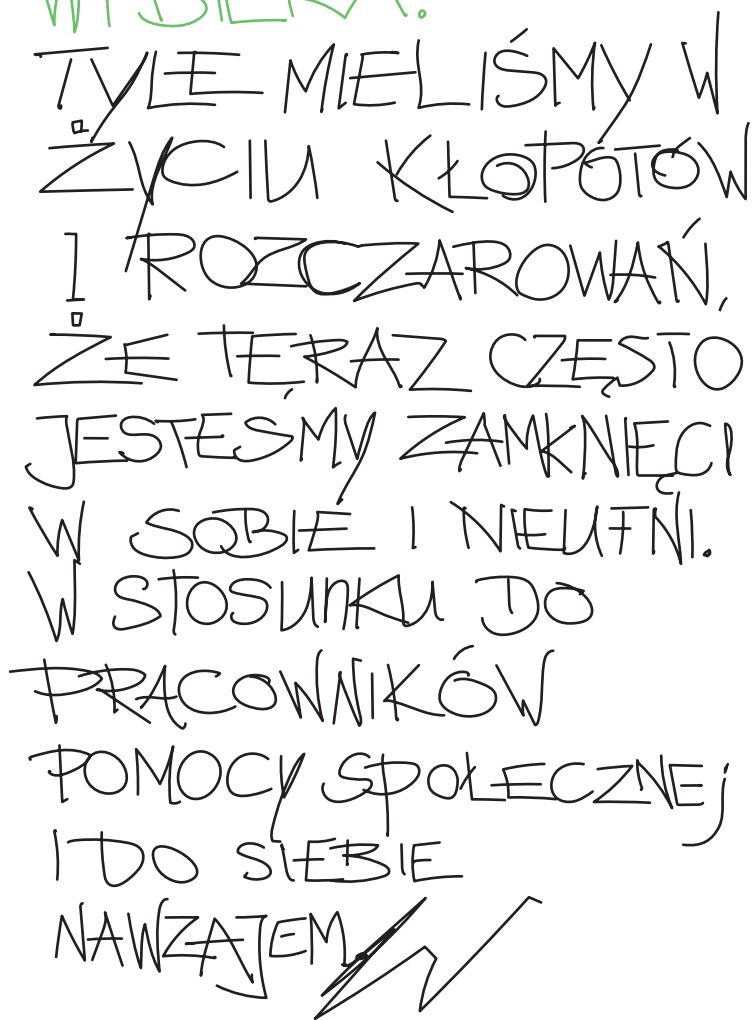 WYBIERA.
TYLE MIELIŚMY W
ŻYCIU KŁOPOTÓW
I ROZCZAROWAŃ,
ŻE TERAZ CZĘSTO
JESTEŚMY ZAMKNIĘCI
W SOBIE I NIEUFNI.
W STOSUNKU DO
PRACOWNIKÓW
POMOCY SPOŁECZNEJ
I DO SIEBIE
NAWZAJEM.